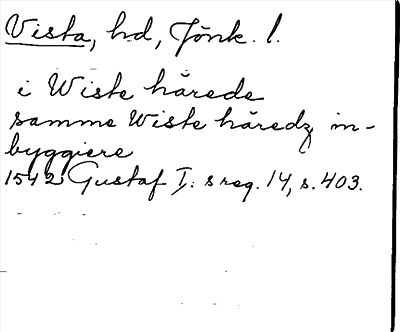 Vista, hd, Jönk. l.
i Wiste härede
samme Wiste häredz in-
byggiere
1542 Gustaf I: s reg. 14, s. 403.